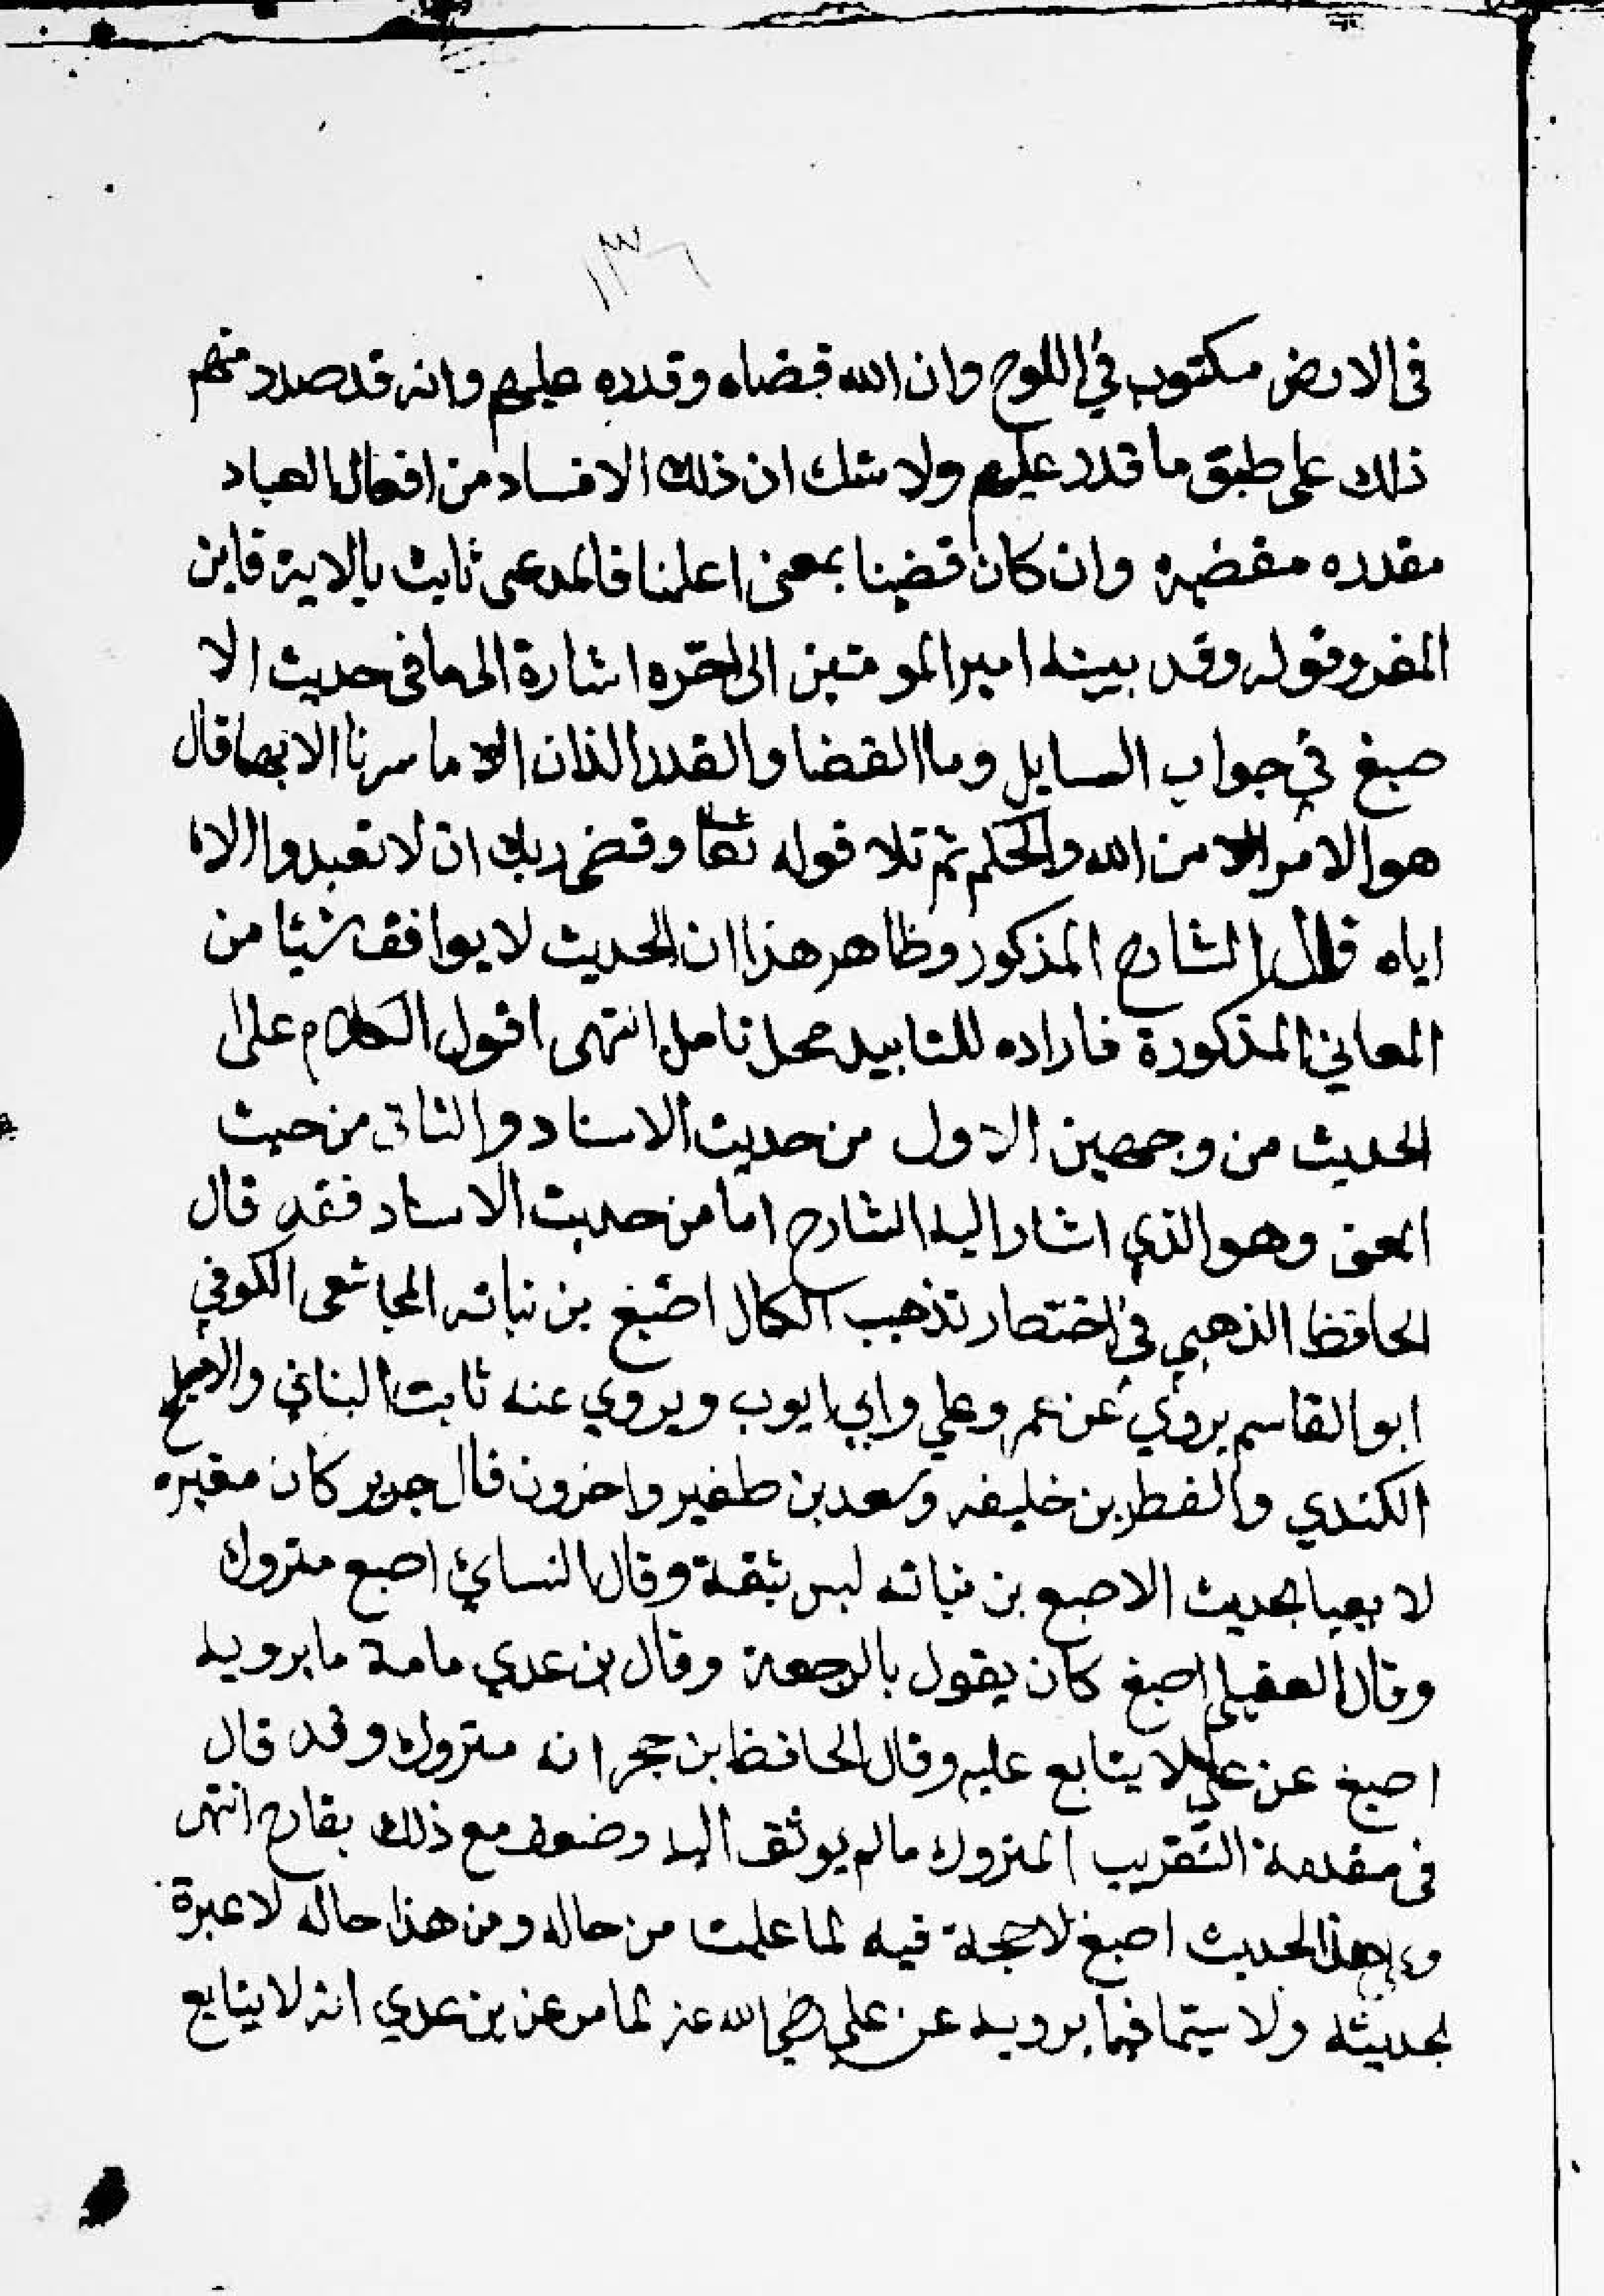 ١٣٦
فى الارض مكتوب في اللوح وان الله قضاه وقدره عليهم وانه قد صدر منهم
ذلك على طبق ما قدر عليهم ولا شك ان ذلك الافساد من افعال العباد
مقدره مقضيه وان كان قضينا بمعنى اعلمنا فالمدعى ثابت بالاية فاين
المفر وقوله وقد بينه امير المومنين الى اخره اشارة الى ما فى حديث الا
صبغ في جواب السايل وما القضا والقدر الذان ما سرنا الا بهما قال
هو الامر من الله والحكم ثم تلا قوله تعا وقضى ربك ان لا تعبدوا الا
اياه قال الشارح المذكور وظاهر هذا ان الحديث لا يوافق شيئا من
المعاني المذكورة فاراده للتاييد محل تامل انتهى اقول الكلام على
الحديث من وجهين الاول من حديث الاسناد والثاني من حيث
المعنى وهو الذي اشار اليه الشارح اما من حديث الاسناد فقد قال
الحافظ الذهبي في اختصار تذهيب الكمال اصبغ بن نباته المجاشعى الكوفي
ابو القاسم يروي عن عمر وعلي وابي ايوب ويروي عنه ثابت البناني والاجلح
الكندي والفطر بن خليفه وسعد بن طفير واخرون قال جرير كان مغيره
لا يعبا بحديث الاصبع بن نباته ليس بثقة وقال النسائي اصبع متروك
وقال العقيلي اصبغ كان يقول بالرجعة وقال بن عدي مامة ما يرويه
اصبغ عن علي لا يتابع عليه وقال الحافظ بن حجر انه متروك وقد قال
فى مقدمة التقريب المتروك ما لم يوثق اليه وضعف مع ذلك بقادح انتهى
هذا الحديث اصبغ لا حجة فيه لما علمت من حاله ومن هذا حاله لا عبرة
بحديثه ولا سيما فيما يرويه عن علي رضي الله عنه لما مر عن بن عدي انه لا يتابع